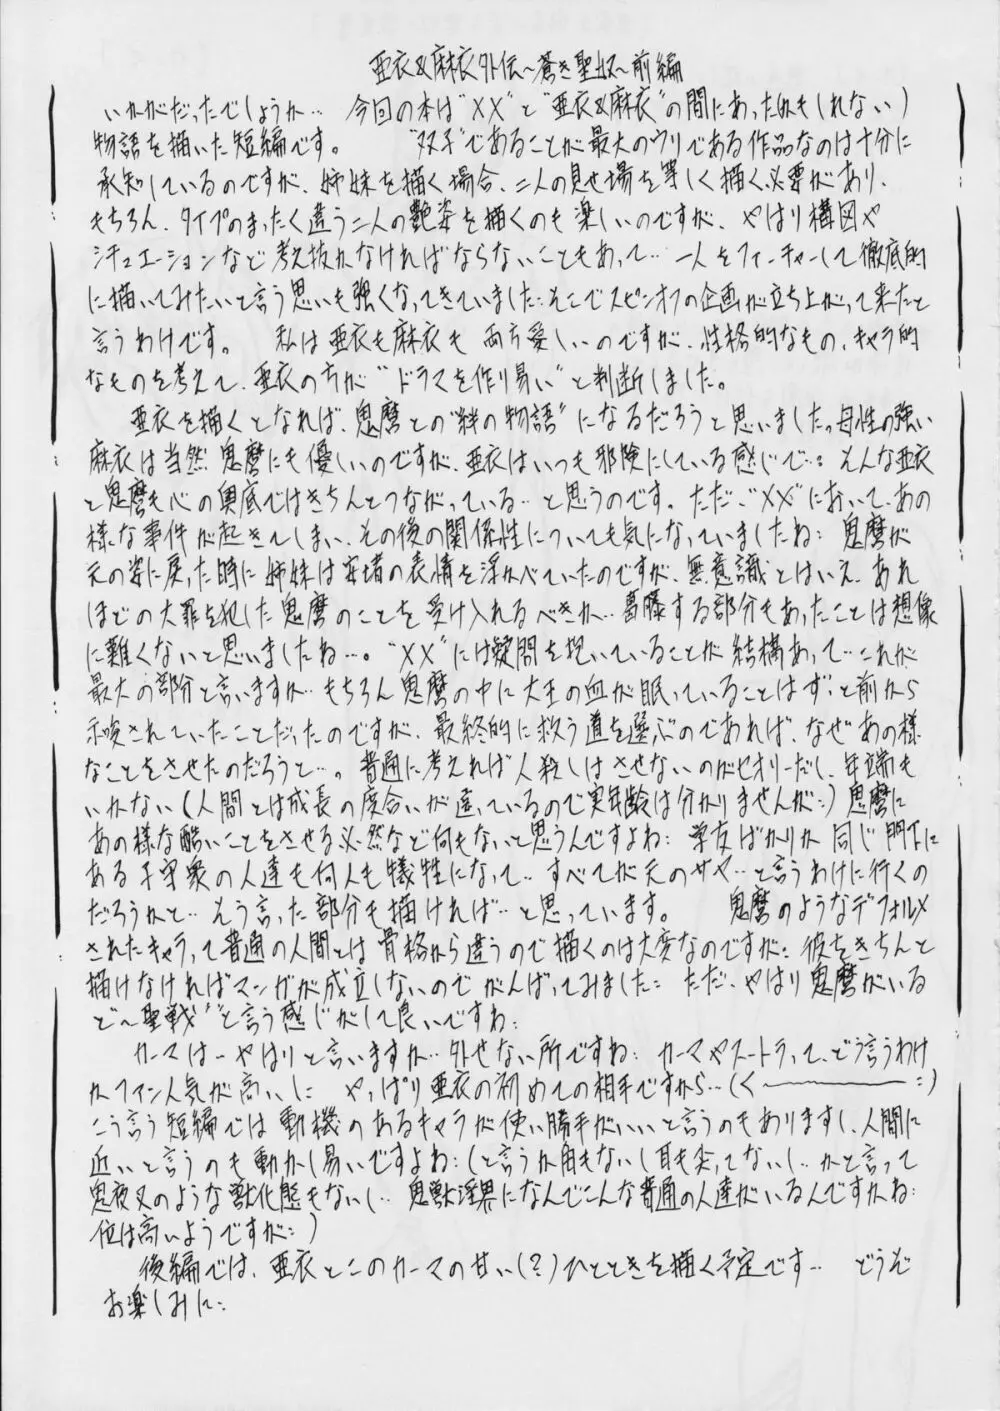 亜衣&麻衣外伝～蒼き聖奴～前編
いかがだったでしょうか… 今回の本は"XX"と"亜衣&麻衣"の間にあった(かもしれない)
物語を描いた短編です。 "双子"であることが最大のウリである作品なのは十分に
承知しているのですが、姉妹を描く場合、二人の見せ場を等しく描く必要があり、
もちろん、タイプのまったく違う二人の艶姿を描くのも楽しいのですが、やはり構図や
シチュエーションなど考え抜かなければならないこともあって… 一人をフィーチャーして徹底的
に描いてみたいと言う思いも強くなってきていました…そこでスピンオフの企画が立ち上がって来たと
言うわけです。 私は亜衣も麻衣も両方愛しいのですが、性格的なもの、キャラ的
なものを考えて、亜衣の方が"ドラマを作り易い"と判断しました。
亜衣を描くとなれば、鬼麿との"絆の物語"になるだろうと思いました。母性の強い
麻衣は当然鬼麿にも優しいのですが、亜衣はいつも邪険にしている感じで… そんな亜衣
と鬼麿も心の奥底ではきちんとつながっている…と思うのです。ただ、"XX"において、あの
様な事件が起きてしまい、その後の関係性についても気になっていましたね… 鬼麿が
元の姿に戻った時に姉妹は安堵の表情を浮かべていたのですが、無意識とはいえ、あれ
ほどの大罪を犯した鬼麿のことを受け入れるべきか…葛藤する部分もあったことは想像
に難くないと思いましたね…。"XX"には疑問を抱いていることが結構あって…これが
最大の部分と言いますか…もちろん鬼麿の中に大王の血が眠っていることはずっと前から
示唆されていたことだったのですが、最終的に救う道を選ぶのであれば、なぜあの様
なことをさせたのだろうと…。普通に考えれば人殺しはさせないのがセオリーだし、年端も
いかない(人間とは成長の度合いが違っているので実年齢は分かりませんが…)鬼麿に
あの様な酷いことをさせる必然など何もないと思うんですよね… 学友ばかりか同じ門下に
ある子守衆の人達も何人も犠牲になって… すべてが元のサヤ…と言うわけに行くの
だろうかと… そう言った部分も描ければ…と思っています。 鬼麿のようなデフォルメ
されたキャラって普通の人間とは骨格から違うので描くのは大変なのですが… 彼をきちんと
描けなければマンガが成立しないのでがんばってみました… ただ、やはり鬼麿がいる
ど～聖戦"と言う感じがして良いですね…
カーマは…やはりと言いますか…外せない所ですね… カーマやスートラって、どう言うわけ
かファン人気が高いし… やっぱり亜衣の初めての相手ですから…(く～…)
こう言う短編では動機のあるキャラが使い勝手がいいと言うのもありますし、人間に
近いと言うのも動かし易いですよね…(と言うか角もないし耳も尖ってないし…かと言って
鬼夜叉のような獣化態もないし… 鬼獣淫界になんでこんな普通の人達がいるんですかね…
位は高いようですが…)
後編では、亜衣とこのカーマの甘い(?)ひとときを描く予定です… どうぞ
お楽しみに…